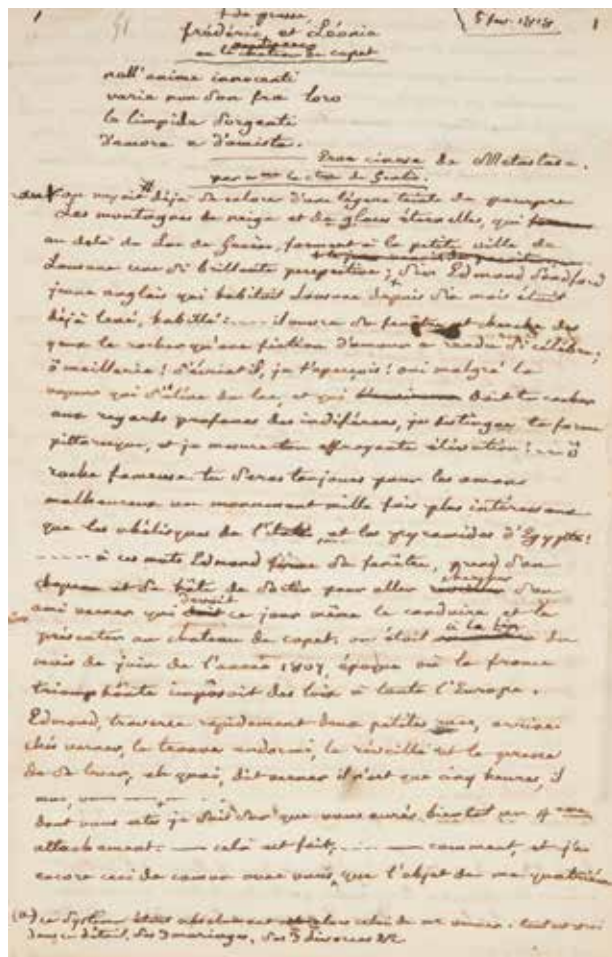 5 fev. 1818
1 1
frédéric et Léonie
ou le chateau de copet
nell'anime innocenti
varie non son fra loro
le limpide sorgenti
d'amore e d'amista.
Metastase.
par mme la ctsse de Genlis.
on voyoit déja se colorer d'une légère teinte de pourpre
Les montagnes de neige et de glaces éternelles, qui
au delà du Lac de Genève, forment à la petite ville de
Lausane une si brillante perspective; Sir Edmond
jeune anglais qui habitoit Lausane depuis six mois étoit
déjà levé, habillé: il ouvre sa fenêtre et cherche des
yeux le rocher qu'une fiction d'amour a rendu si célèbre;
ô meillerie! s'écriat'il, je t'aperçois! oui malgré la
vapeur qui s'élève du lac, et qui doit te cacher
aux regards profanes des indiférens, je distingue ta forme
pittoresque, et je mesure ton effrayante élévation! ô
roche fameuse tu seras toujours pour les amans
malheureux un monument mille fois plus intéressant
que les obélisques de l'italie, et les pyramides d'Egypte!
à ces mots Edmond ferme sa fenêtre, prend son
chapeau et se hâte de sortir pour aller chercher son
ami verner qui devoit ce jour même le conduire et le
présenter au chateau de copet; on était à la fin du
mois de juin de l'année 1807, époque où la france
triomphante imposoit des loix à toute l'Europe.
Edmond, traverse rapidement deux petites rues, arrive
chés verner, le trouve endormi, le réveille et le presse
de se lever, eh quoi, dit verner il n'est que cinq heures, il
dont vous etes je suis sûr que vous aurés bientot un 4eme
attachement. — celà est fait, — comment, et j'ai
encore ceci de comun avec vous, que l'objet de ma quatrième
(a) ce système étoit absolument alors celui de mr verner. tout est vrai
dans ce détail, ses 3 mariages, ses 3 divorces &c